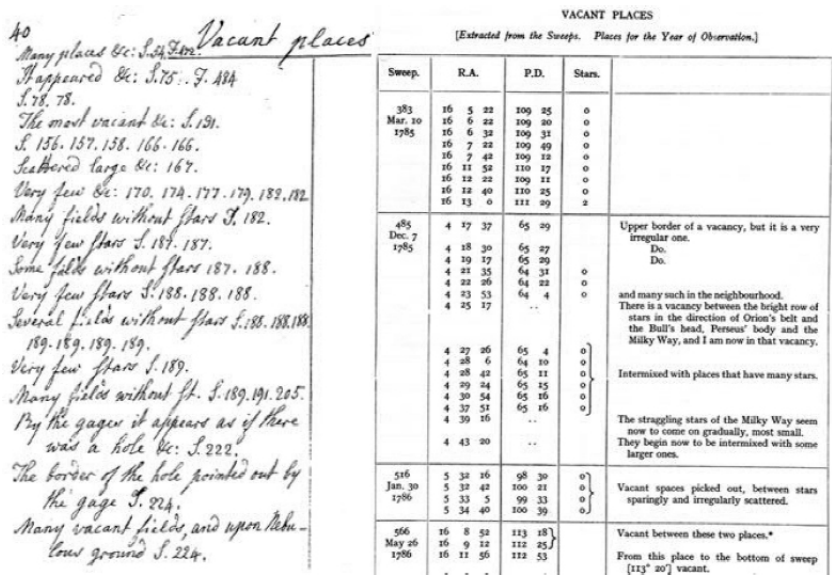 40
Vacant places
Many places &c: S.54. F.402.
It appeared &c: S.75. F. 484
S.78. 78.
The most vacant &c: S. 131.
S. 156. 157. 158. 166. 166.
Scattered large &c: 167.
Very few &c: 170. 174. 177. 179. 182. 182
Many fields without Stars S. 182.
Very few stars S. 187. 187.
Some fields without stars 187. 188.
Very few stars S. 188. 188. 188.
Several fields without stars S. 188. 188. 188
189. 189. 189. 189.
Very few stars S. 189.
Many fields without st. S. 189. 191. 205.
By the gages it appears as if there
was a hole &c: S. 222.
The border of the hole pointed out by
the gage S. 224.
Many vacant fields, and upon Nebu-
lous ground S. 224.
VACANT PLACES
[Extracted from the Sweeps. Places for the Year of Observation.]
Sweep. R.A. P.D. Stars.
383 16 5 22 109 25 0
Mar. 10 16 6 22 109 20 0
1785 16 6 32 109 31 0
16 7 22 109 49 0
16 7 42 109 12 0
16 11 52 110 17 0
16 12 22 109 11 0
16 12 40 110 25 0
16 13 0 111 29 2
485 4 17 37 65 29 Upper border of a vacancy, but it is a very
Dec. 7 irregular one.
1785 4 18 30 65 27 Do.
4 19 17 65 29 Do.
4 21 35 64 31 0
4 22 26 64 22 0
4 23 53 64 4 0 and many such in the neighbourhood.
4 25 17 .. There is a vacancy between the bright row of
stars in the direction of Orion's belt and
the Bull's head, Perseus' body and the
Milky Way, and I am now in that vacancy.
4 27 26 65 4 0
4 28 6 64 10 0
4 28 42 65 11 0 Intermixed with places that have many stars.
4 29 24 65 15 0
4 30 54 65 16 0
4 37 51 65 16 0
4 39 16 .. The straggling stars of the Milky Way seem
now to come on gradually, most small.
4 43 20 .. They begin now to be intermixed with some
larger ones.
516 5 32 16 98 30 0
Jan. 30 5 32 42 100 21 0 Vacant spaces picked out, between stars
1786 5 33 5 99 33 0 sparingly and irregularly scattered.
5 34 40 100 39 0
566 16 8 52 113 18 Vacant between these two places.*
May 26 16 9 12 112 25
1786 16 11 56 112 53 From this place to the bottom of sweep
[113° 20′] vacant.